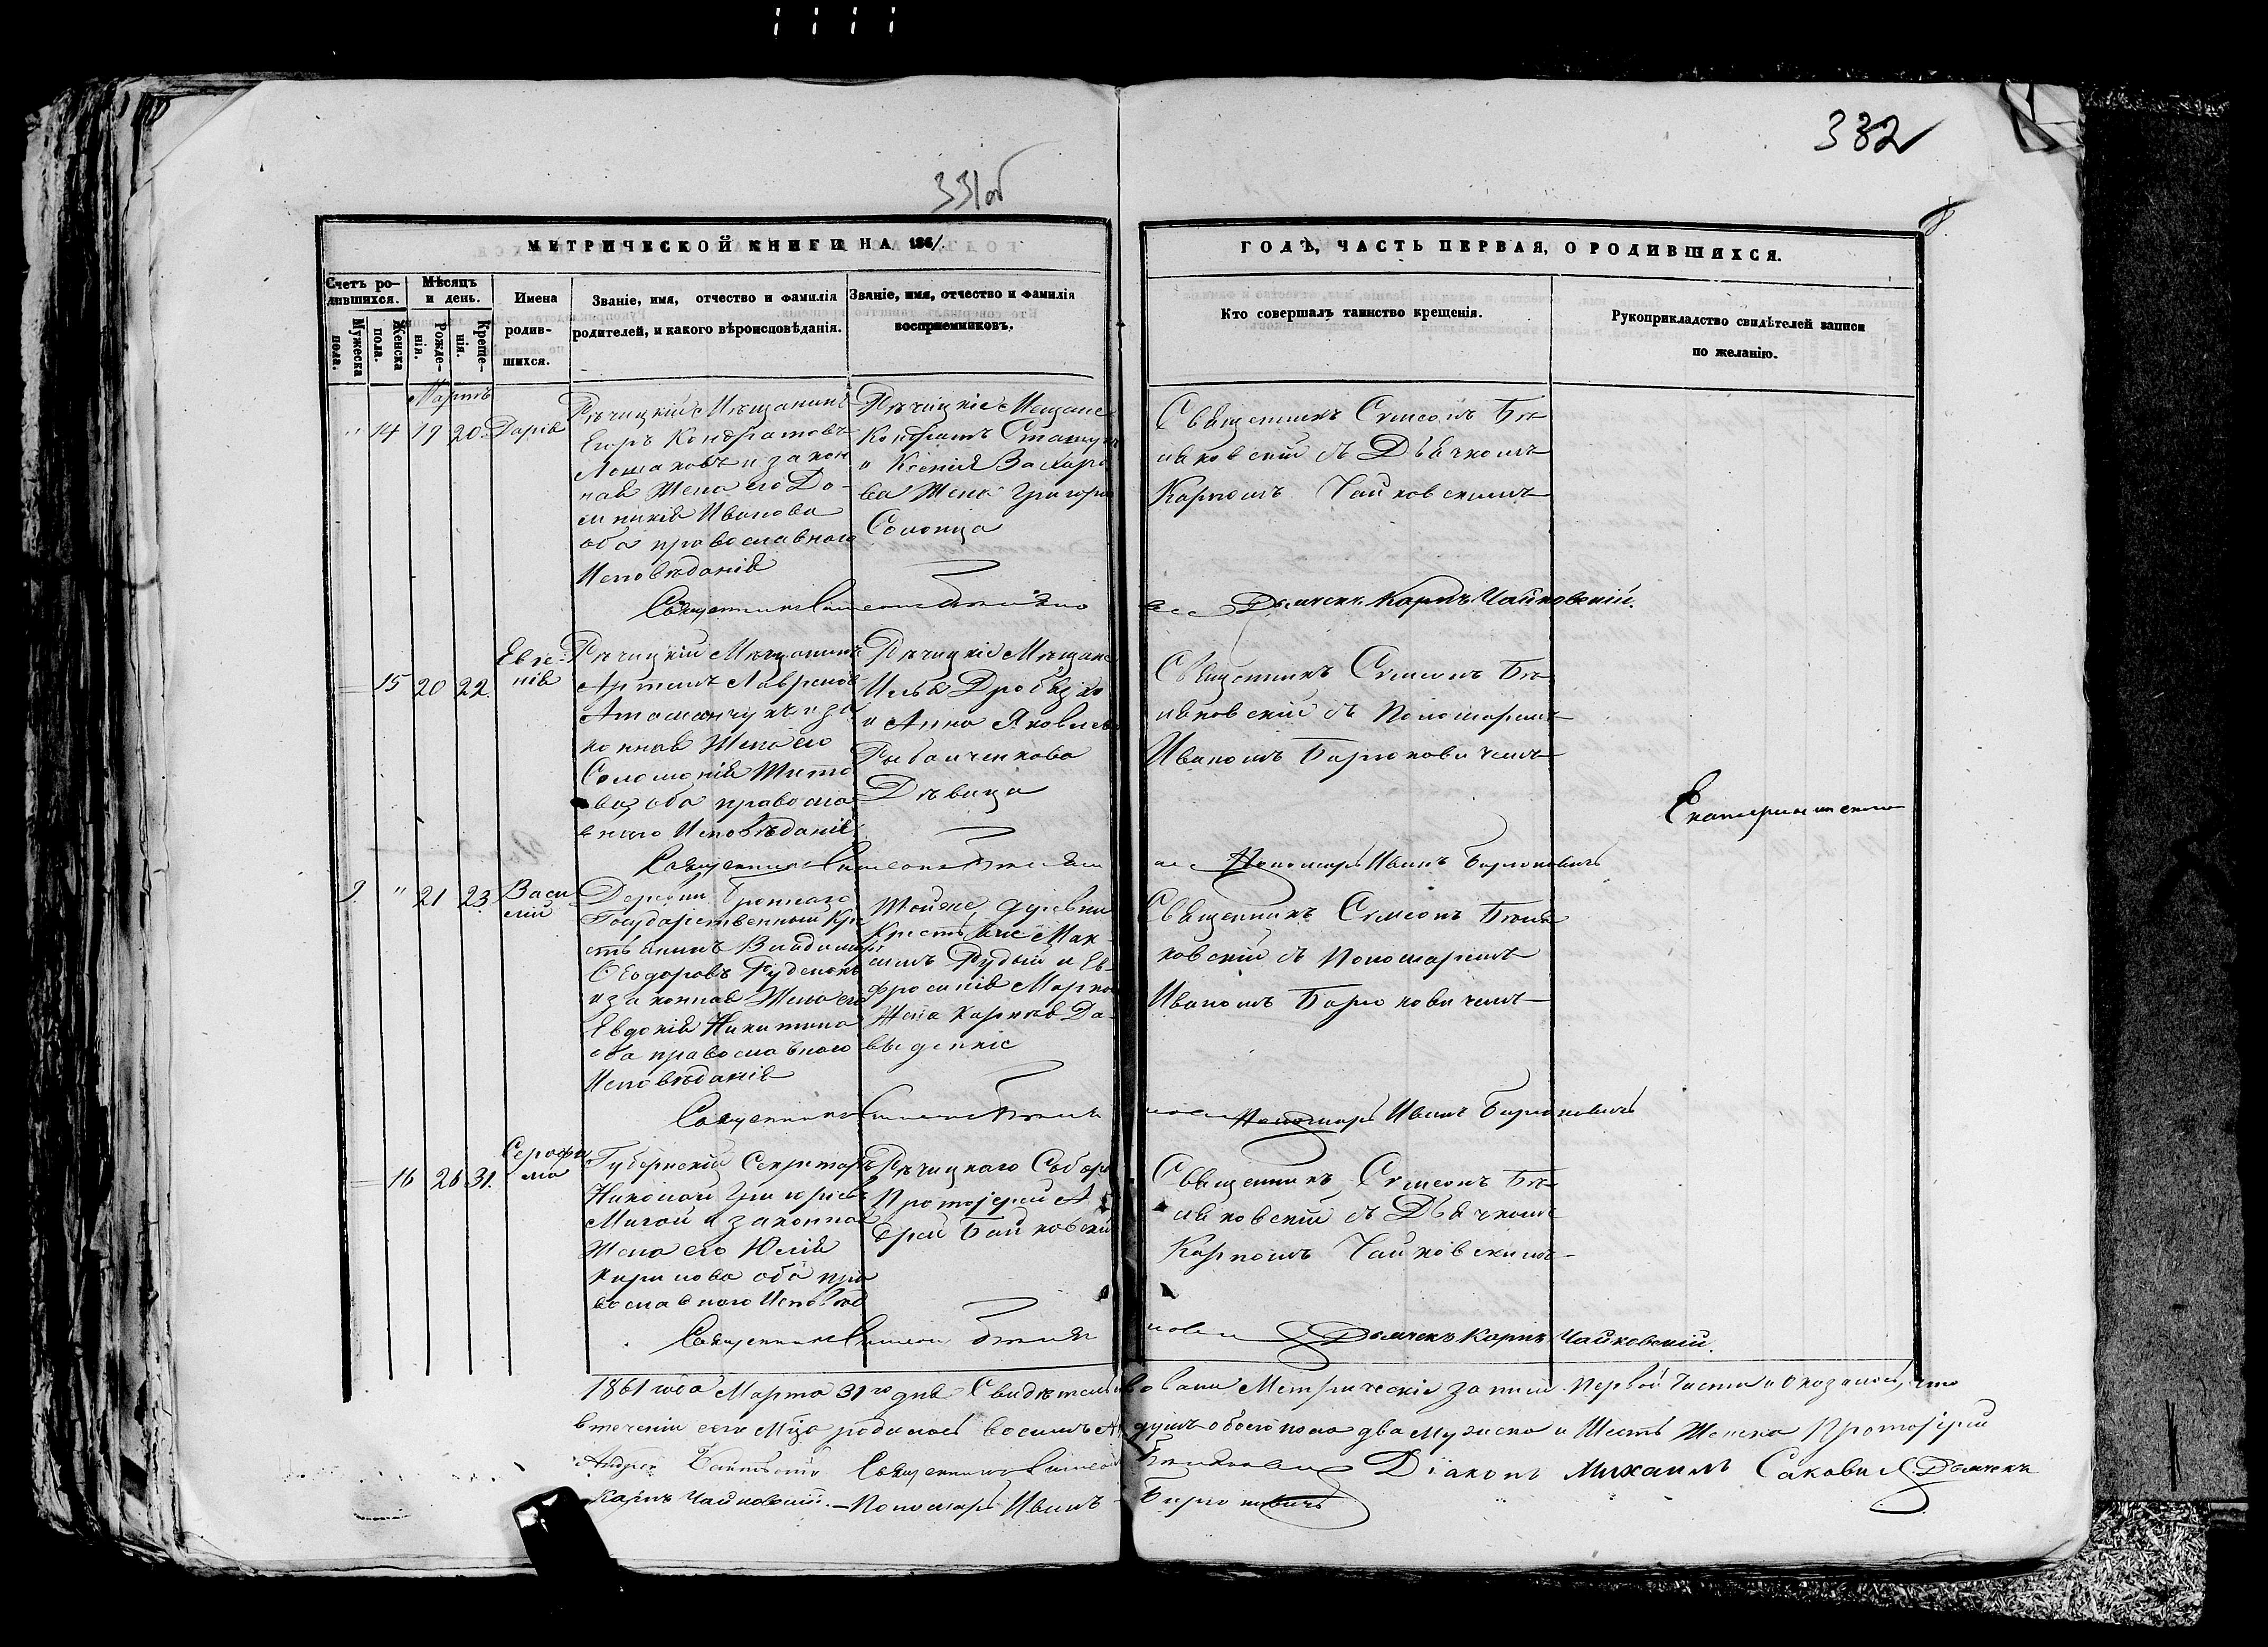 331об
332
МЕТРИЧЕСКОЙ КНИГИ НА 1861
ГОДЪ, ЧАСТЬ ПЕРВАЯ, О РОДИВШИХСЯ.
Счетъ ро-
дившихся.
Мужеска
пола.
Женска
пола.
Мѣсяцъ
и день.
Рожде-
нія.
Креще-
нія.
Имена
родив-
шихся.
Званіе, имя, отчество и фамилія
родителей, и какого вѣроисповѣданія.
Званіе, имя, отчество и фамилія
восприемниковъ.
Кто совершалъ таинство крещенія.
Рукоприкладство свидѣтелей записи
по желанію.
Мартъ
" 14 19 20. Дарія
Рѣчицкій Мѣщанинъ
Егоръ Кондратовъ
и закон
ная Жена его До-
мникія Иванова
оба православного
Исповѣданія
Рѣчицкіе Мещане
Кондратъ
и Ксенія Захаро
ва Жена Григорія
Солонца
Священникъ Симеонъ Бѣ-
ляковскій съ Дьячкомъ
Карпомъ Чайковскимъ
Священникъ
Дьячекъ Карпъ Чайковскій.
15 20 22. Евге-
нія
Рѣчицкій Мѣщанинъ
Артемъ Лавренов
Атаманчукъ и за
конная Жена его
Соломонія Тито
ва, оба правосла
внаго Исповѣданія
Рѣчицкіе Мѣщане
Илья Дробязко
и Анна Яковлева
Рыбальченкова
Дѣвица
Священникъ Симеонъ Бѣ-
ляковскій съ Пономаремъ
Иваномъ Бирюковичемъ
Священникъ
Пономарь Иванъ Бирюковичъ
2. " 21 23. Васи
лій
Деревни Броннаго
Государственный Кре
стьянинъ Владимиръ
Ѳеодоровъ Руденокъ
и законная Жена его
Евдокія Никитина
оба православного
Исповѣданія
Тойже деревни
Крестьяне Мак-
симъ Рудый и Ев-
фросинія Маркова
Жена Карпа Да-
Священникъ Симеонъ Бѣля
ковскій съ Пономаремъ
Иваномъ Бирюковичемъ
Священникъ
Пономарь Иванъ Бирюковичъ
16 26 31. Серафи
ма
Губернскій Секретарь
Николай Григорьевъ
и законная
Жена его Юлія
Кирилова оба пра
вославного Исповѣд
Рѣчицкаго Собора
Протоіерей Ан
дрей
Священникъ Симеонъ Бѣ-
ляковскій съ Дьячкомъ
Карпомъ Чайковскимъ
Священникъ
Дьячекъ Карпъ Чайковскій.
1861 года Марта 31го дня Свидѣтельствованы Метрическіе записи Первой Части и оказалось, что
втеченіи сего Мца родилось восемь душъ обоего пола два Мужеска и Шесть Женска Протоіерей
Андрей Священникъ Діаконъ Михаилъ Сакович Дьячекъ
Карпъ Чайковскій. – Пономарь Иванъ Бирюковичъ